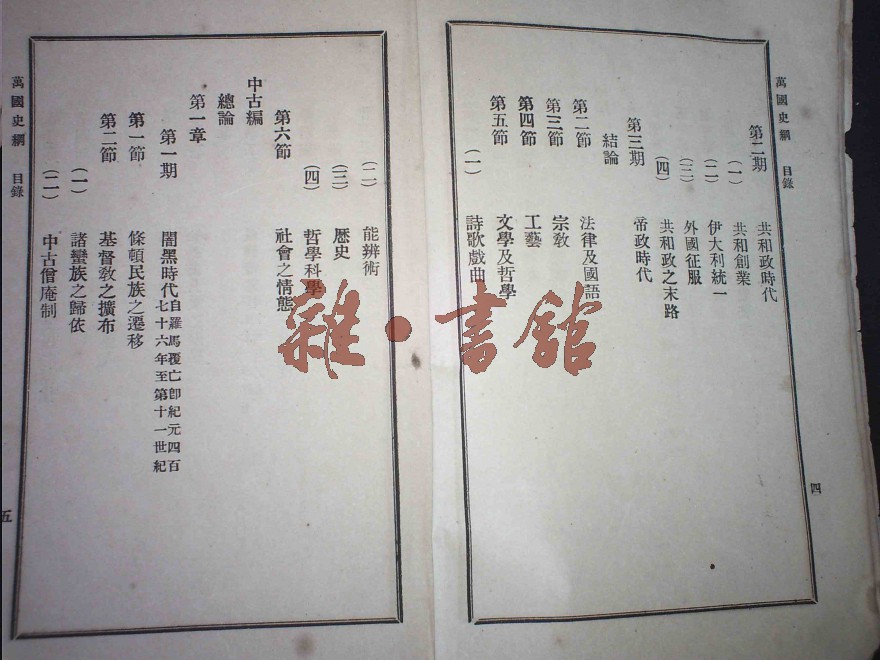 萬國史綱 目錄
第二期 共和政時代
(一) 共和創業
(二) 伊大利統一
(三) 外國征服
(四) 共和政之末路
第三期 帝政時代
結論
第二節 法律及國語
第三節 宗教
第四節 工藝
第五節 文學及哲學
(一) 詩歌戲曲
四
(二) 能辨術
(三) 歷史
(四) 哲學科學
第六節 社會之情態
中古編
總論
第一章
第一期 闇黑時代自羅馬覆亡卽紀元四百七十六年至第十一世紀
第一節 條頓民族之遷移
第二節 基督教之擴布
(一) 諸蠻族之歸依
(二) 中古僧庵制
萬國史綱 目錄
五
雜·書館